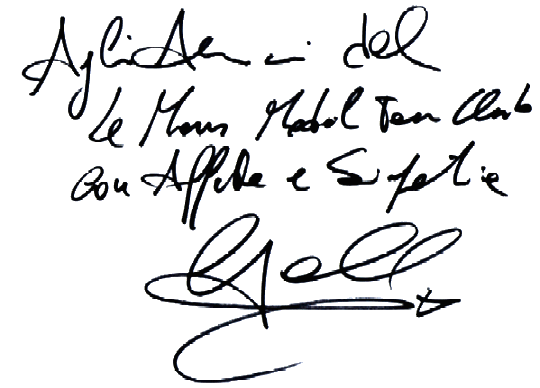 Agli Amici del
Le Mans Model Fan Club
con Affetto e Simpatia